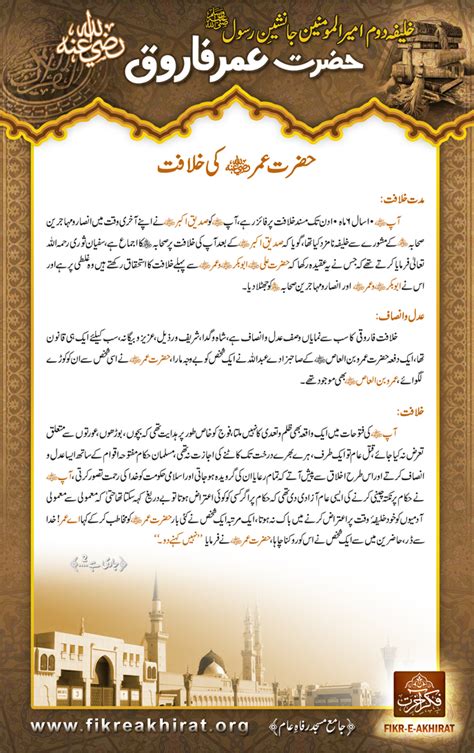 خلیفہ دوم امیر المومنین جانشینِ رسول ﷺ
حضرت عمر فاروق
رضی اللہ عنہ
حضرت عمر رضی اللہ عنہ کی خلافت
مدت خلافت:
آپ رضی اللہ عنہ ۱۰ سال ۶ ماہ ۱۰ دن تک مسند خلافت پر فائز رہے، آپ کو صدیق اکبر رضی اللہ عنہ نے اپنے آخری وقت میں انصار و مہاجرین
صحابہ کے مشورے سے خلیفہ نامزد کیا تھا، گویا کہ صدیق اکبر کے بعد آپ کی خلافت پر صحابہ کا اجماع ہے، سفیان ثوری رحمہ اللہ
تعالیٰ فرمایا کرتے تھے کہ جس نے یہ عقیدہ رکھا کہ حضرت علی، ابوبکر و عمر سے پہلے خلافت کا استحقاق رکھتے ہیں وہ غلطی پر ہے اور
اس نے ابوبکر و عمر اور انصار و مہاجرین صحابہ کو جھٹلا دیا۔
عدل وانصاف:
خلافت فاروقی کا سب سے نمایاں وصف عدل و انصاف ہے، شاہ و گدا، شریف و رذیل، عزیز و بیگانہ، سب کیلئے ایک ہی قانون
تھا، ایک دفعہ حضرت عمرو بن العاص کے صاحبزادے عبداللہ نے ایک شخص کو بے وجہ مارا، حضرت عمر نے اسی شخص سے ان کو کوڑے
لگوائے، عمرو بن العاص بھی موجود تھے۔
خلافت:
آپ کی فتوحات میں ایک واقعہ بھی ظلم و تعدی کا نہیں ملتا، فوج کو خاص طور پر ہدایت تھی کہ بچوں، بوڑھوں، عورتوں سے متعلق
تعرض نہ کیا جائے قتل عام تو ایک طرف، ہرے بھرے درخت تک کاٹنے کی اجازت نہ تھی، مسلمان حکام مفتوحہ اقوام کے ساتھ ایسا عدل و
انصاف کرتے اور اس طرح اخلاق سے پیش آتے کہ تمام رعایا ان کی گرویدہ ہو جاتی اور اسلامی حکومت کو خدا کی رحمت تصور کرتی، آپ
نے حکام پر نکتہ چینی کرنے کی ایسی عام آزادی دی تھی کہ حکام پر اگر کسی کو کوئی اعتراض ہوتا تو بے دریغ کہہ سکتا تھا حتیٰ کہ معمولی سے معمولی
آدمیوں کو خود خلیفہ وقت پر اعتراض کرنے میں باک نہ ہوتا، ایک مرتبہ ایک شخص نے کئی بار حضرت عمر کو مخاطب کر کے کہا اے عمر! خدا
سے ڈر، حاضرین میں سے ایک شخص نے اس کو روکنا چاہا، حضرت عمر نے فرمایا "نہیں کہنے دو۔"
جاری ہے
www.fikreakhirat.org
جامع مسجد رفاہِ عام
فکر آخرت
FIKR-E-AKHIRAT